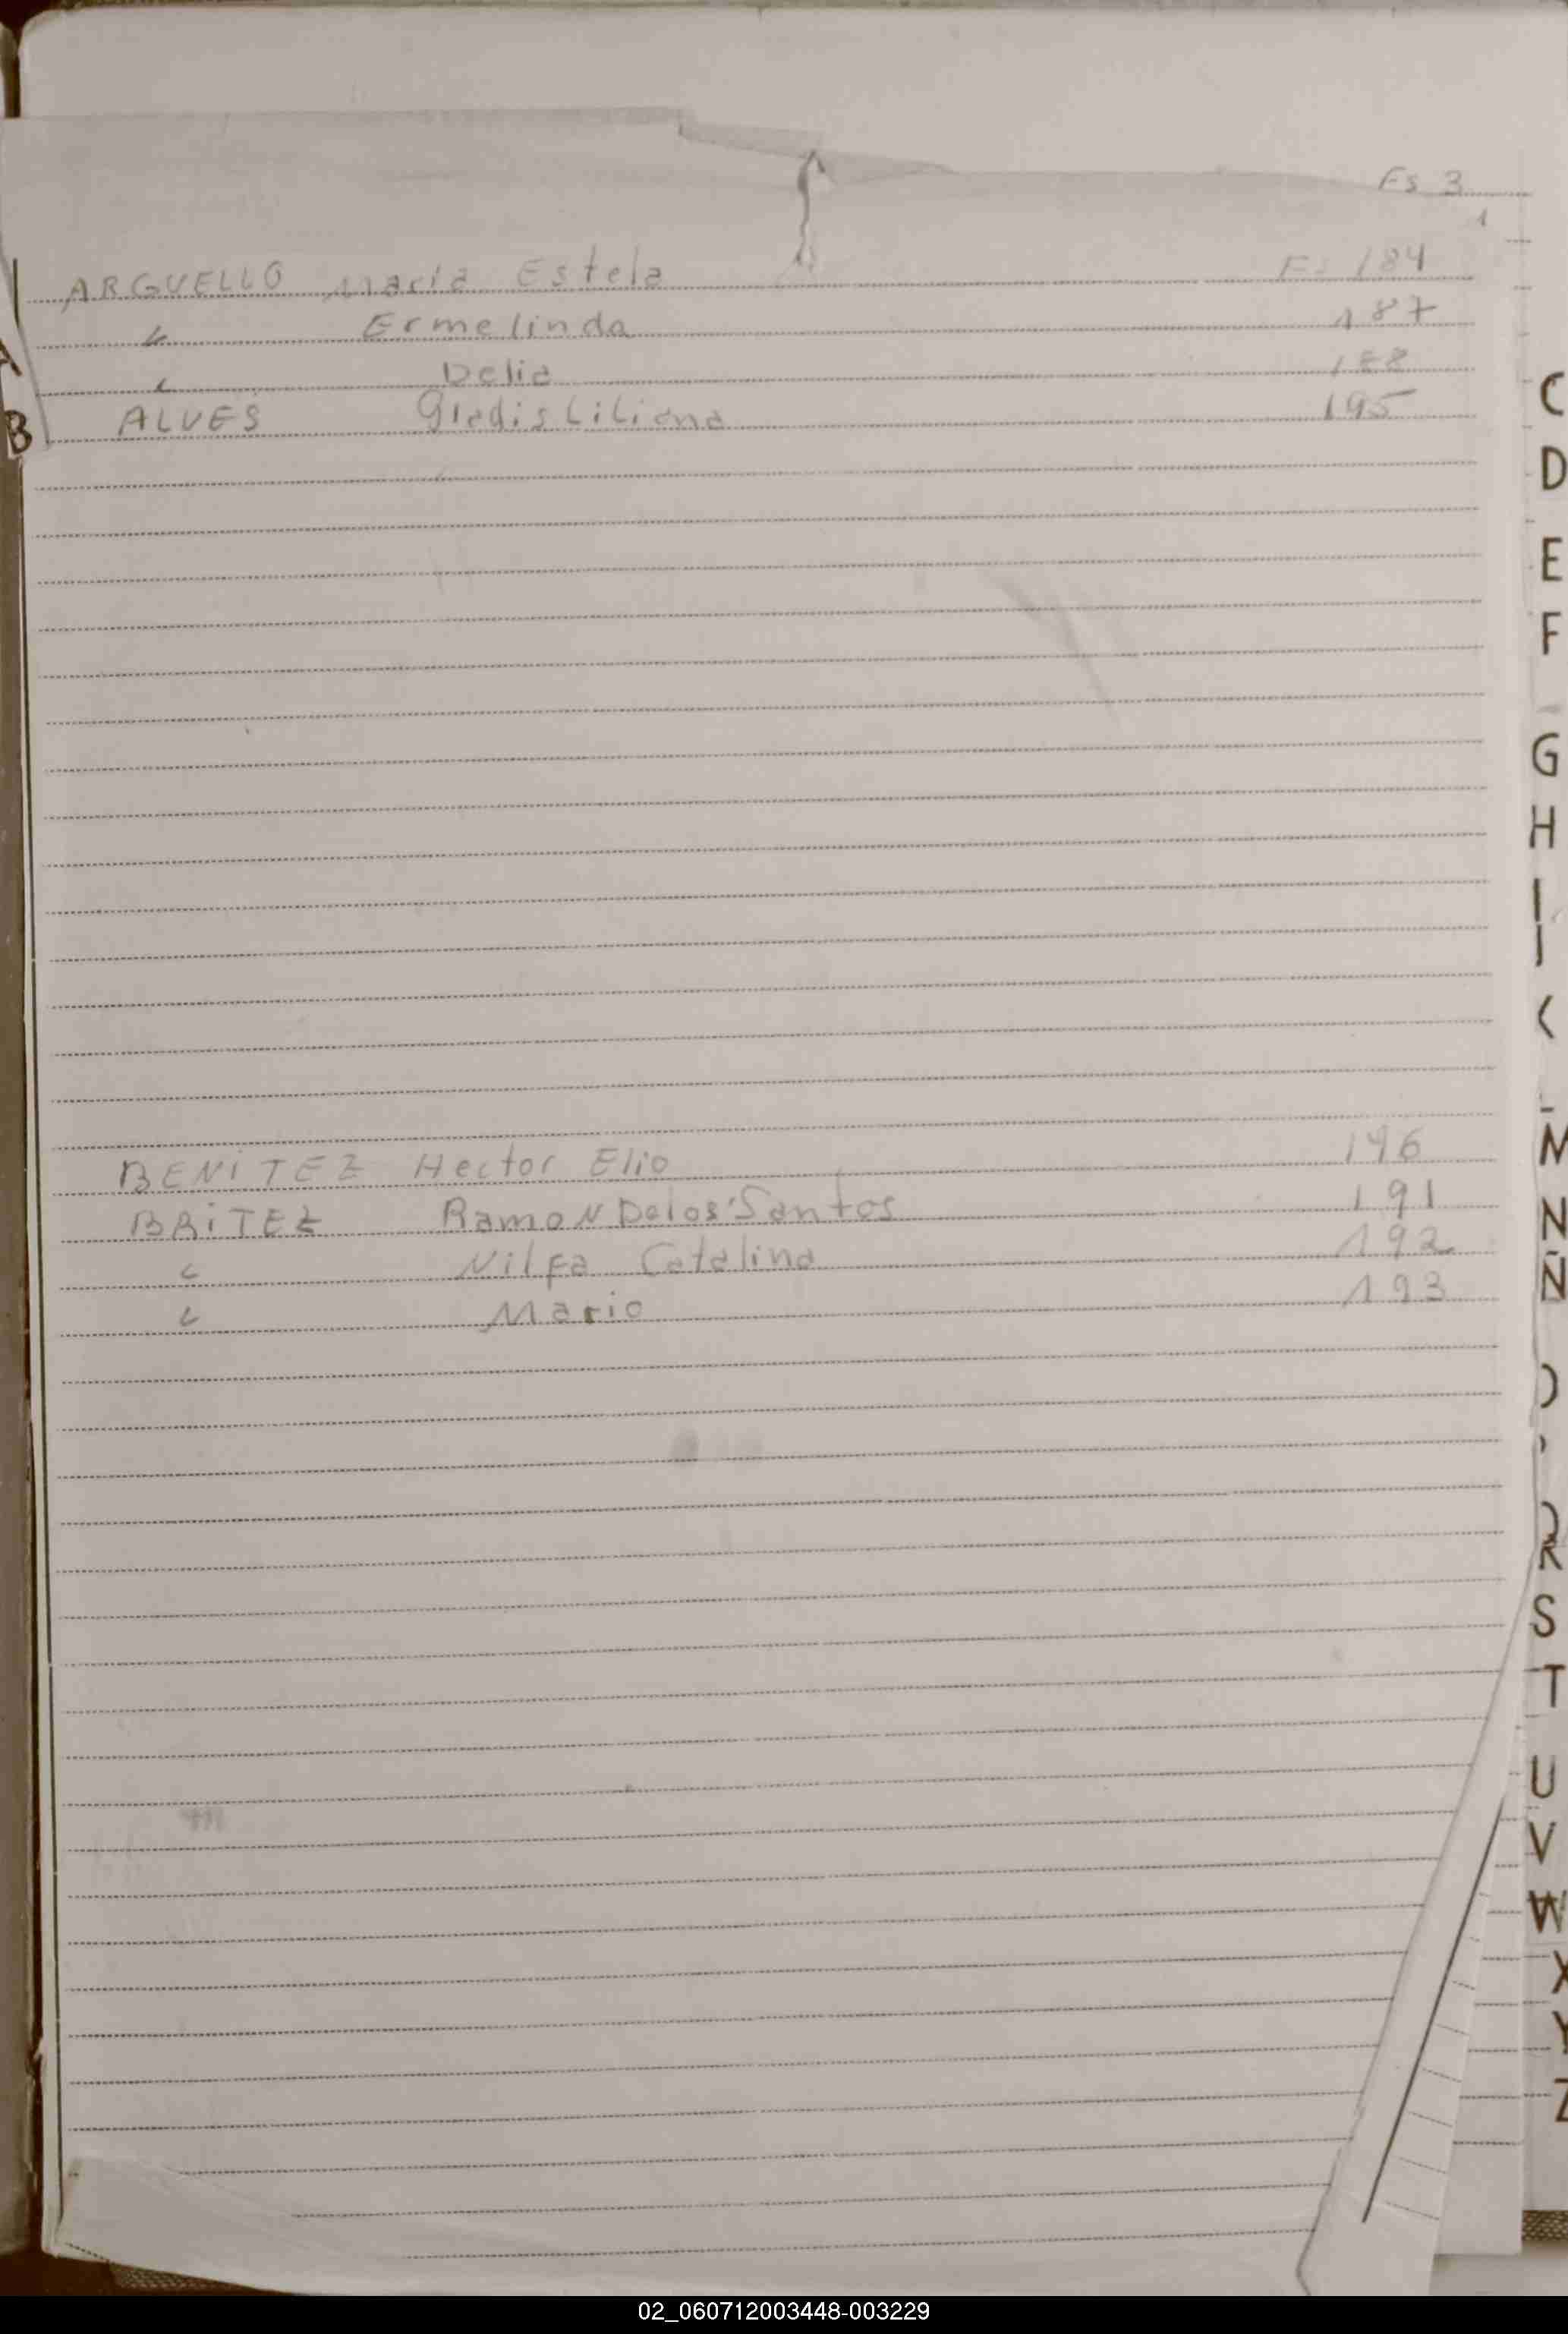 Fs 3
1
ARGUELLO Maria Estela Fs 184
" Ermelinda 187
" Delia 188
ALVES Gladis Liliana 195
BENITEZ Hector Elio 196
BRITEZ Ramon Delos Santos 191
" Nilfa Catalina 192
" Mario 193
A
B
C
D
E
F
G
H
I
M
N
Ñ
R
S
T
U
V
W
X
Y
Z
02_060712003448-003229